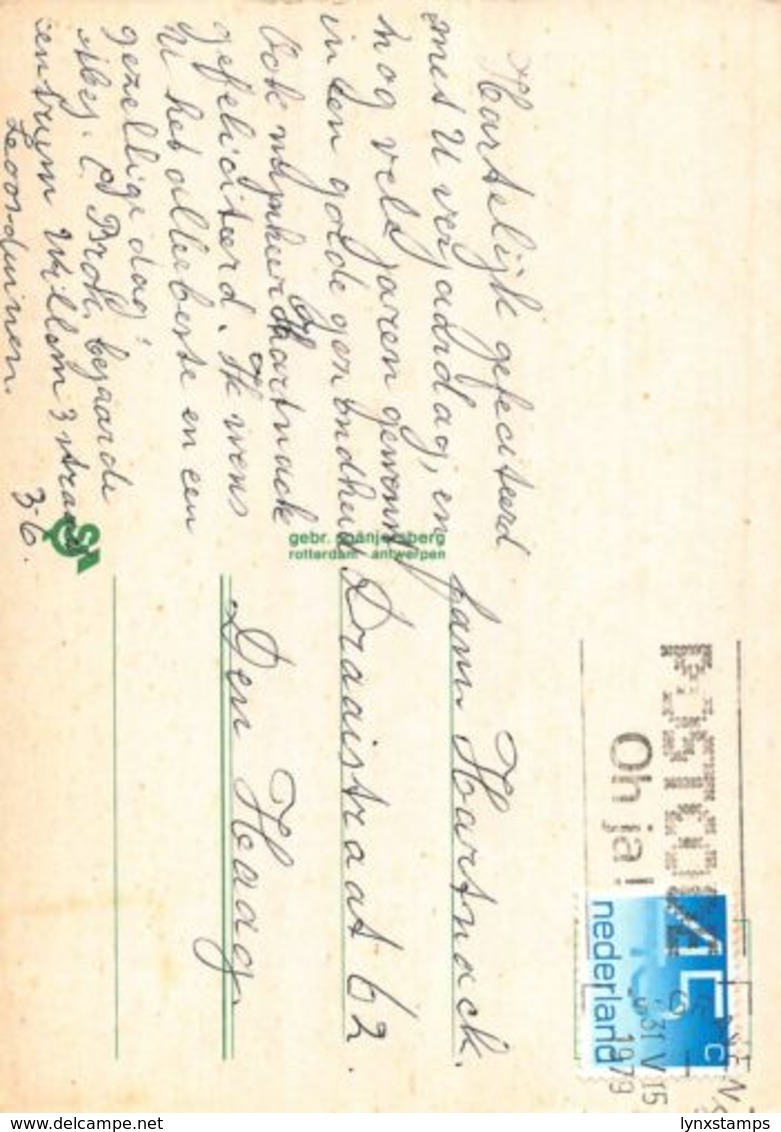 Hartelijk gefeciteerd
met U verjaardag, en
nog vele jaren gewenst
in een goede gezondheid
Ook mynheer Hartnack
gefeliciteerd. Ik wens
U het allerbeste en een
gezellige dag!
C Brok, bejaarde
centrum Willem 3 straat
Loosduinen. 3-6.
gebr. spanjersberg
rotterdam - antwerpen
fam. Hartnack.
Draaistraat 62.
Den Haag.
POSTCODE
Oh ja!
45 c
nederland
31 V 15
1979
lynxstamps
www.delcampe.net